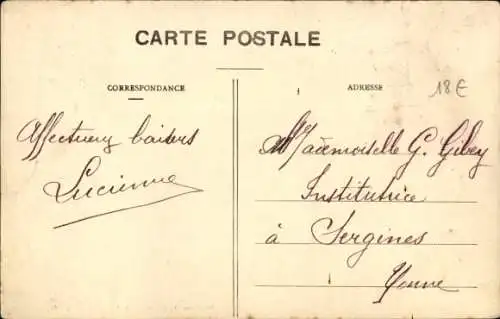 CARTE POSTALE
CORRESPONDANCE
ADRESSE
18€
Affectueux baisers
Lucienne
Mademoiselle G. Gibey
Institutrice
à Sergines
Yonne